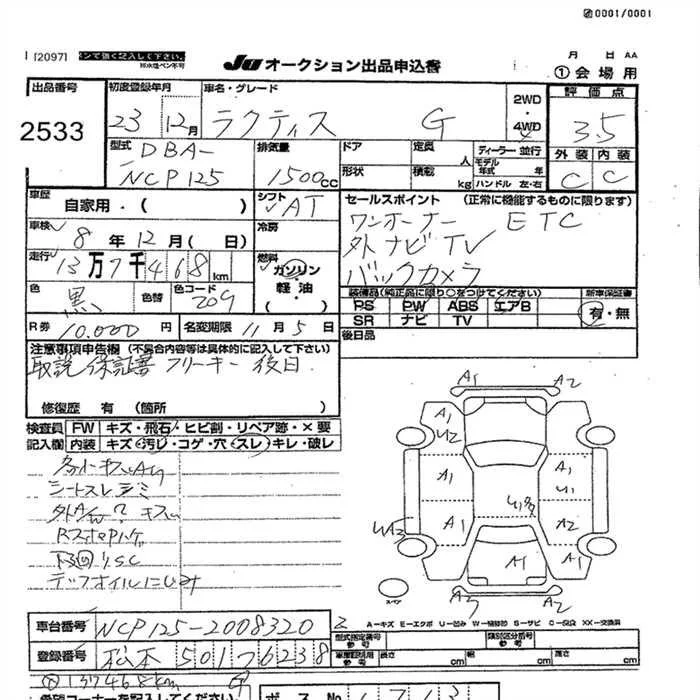 0001/0001
[2097] ペンで強く記入して下さい。
JU オークション出品申込書
月 日 AA
① 会場用
出品番号 2533
初度登録年月 23 12月
車名・グレード ラクティス G
2WD・4WD
評価点 3.5
外装 C 内装 C
型式 DBA-NCP125
排気量 1500cc
ドア 定員 人
形状 積載 kg
ディーラー・並行
モデル年式 年
ハンドル 左・右
車歴 自家用・( )
シフト AT
冷房
セールスポイント (正常に機能するものに限ります)
ワンオーナー ETC
外ナビTV
バックカメラ
車検 8年12月(日)
走行 13万7千468km
燃料 ガソリン・軽油・( )
色 黒 色替 色コード 209
装備品(純正品に限り○をつけてください)
PS PW ABS エアB
SR ナビ TV
新車保証書 有・無
R券 10.000円
名変期限 11月5日
後日品
注意事項申告欄 (不具合内容等は具体的に記入して下さい)
取説 保証書 フリーキー 後日
修復歴 有 (箇所 )
検査員記入欄
FW キズ・飛石・ヒビ割・リペア跡・×要
内装 キズ・汚れ・コゲ・穴・スレ・キレ・破レ
シートスレシミ
外A/W? キズ
デフオイルにじみ
A1 A2
A1 U2 A1
A1 A1 U1
UA3 A1 A2
A1 A1 A1
A3 A2
スペア
2
A-キズ E-エクボ U-凹み W-補修跡 S-サビ C-腐食 XX-交換済
車台番号 NCP125-2008320
登録番号 松本 501 7 6238
型式指定番号 参考
類別区分番号 参考
長さ cm 幅 cm 高さ cm
137468km
希望コーナーを記入して下さい
ボスNo
1713